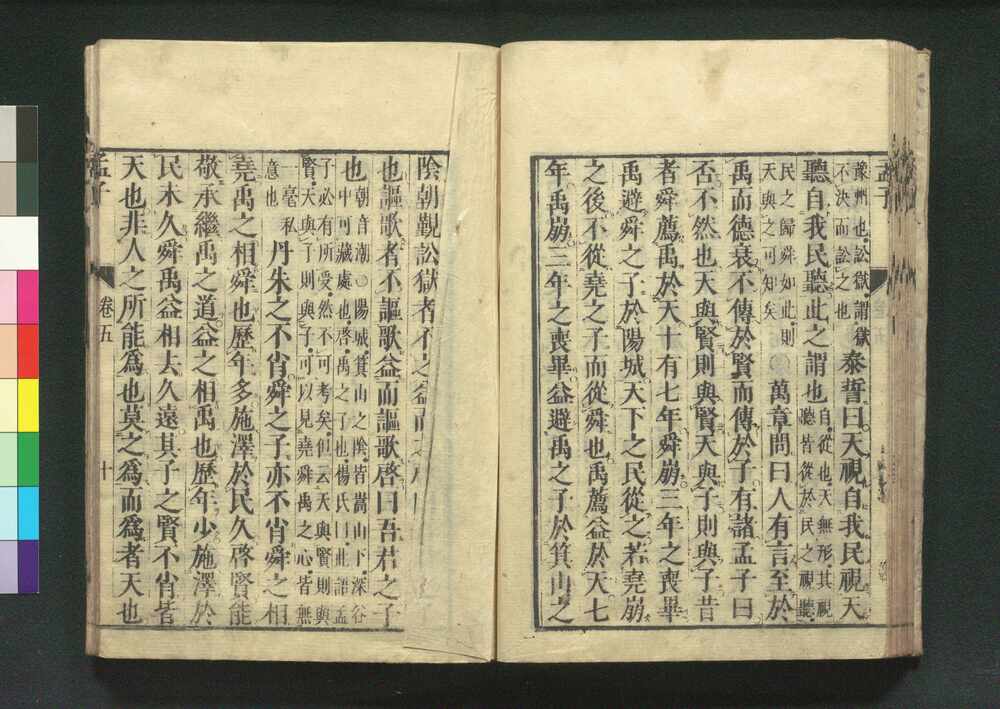 豫州也訟獄謂獄
不決而訟之也
泰誓曰天視自我民視天
聽自我民聽此之謂也
自從也天無形其視
聽皆從於民之視聽
民之歸舜如此則
天與之可知矣
萬章問曰人有言至於
禹而德衰不傳於賢而傳於子有諸孟子曰
否不然也天與賢則與賢天與子則與子昔
者舜薦禹於天十有七年舜崩三年之喪畢
禹避舜之子於陽城天下之民從之若堯崩
之後不從堯之子而從舜也禹薦益於天七
年禹崩三年之喪畢益避禹之子於箕山之
孟子
陰朝覲訟獄者不之益而之
也謳歌者不謳歌益而謳歌啓曰吾君之子
也
朝音潮○陽城箕山之陰皆嵩山下深谷
中可藏處也啓禹之子也楊氏曰此語孟
子必有所受然不可考矣但云天與賢則與
賢天與子則與子可以見堯舜禹之心皆無
一毫私
意也
丹朱之不肖舜之子亦不肖舜之相
堯禹之相舜也歷年多施澤於民久啓賢能
敬承繼禹之道益之相禹也歷年少施澤於
民未久舜禹益相去久遠其子之賢不肖皆
天也非人之所能爲也莫之爲而爲者天也
孟子
卷五
十